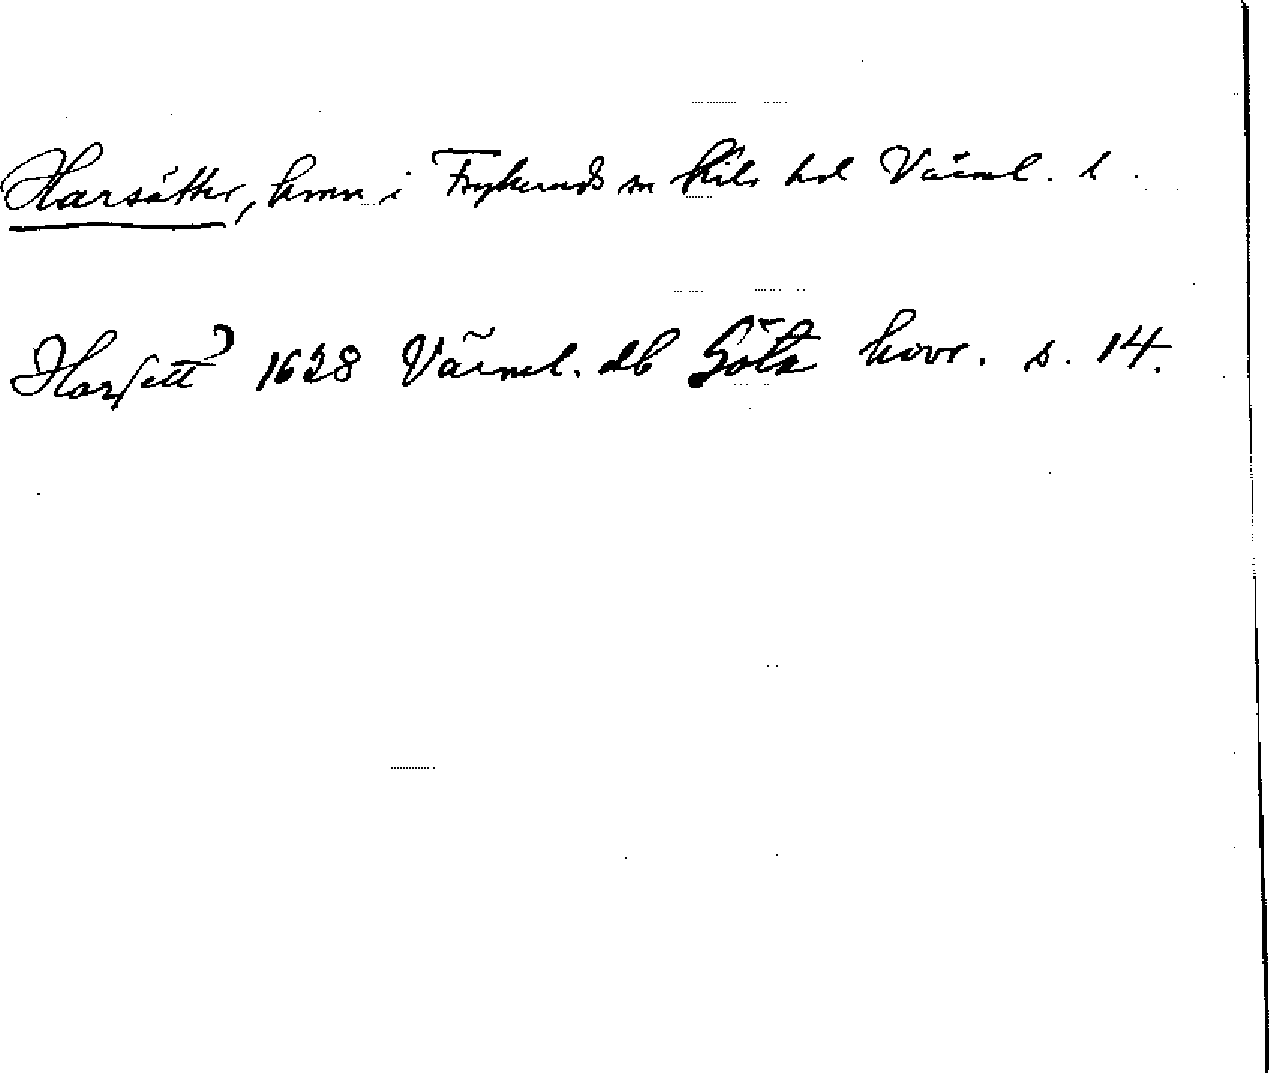 Harsätter, hmn i Frykeruds sn Kils hd Värml. l.
Harsett 1628 Värml. db Göta hovr. s. 14.